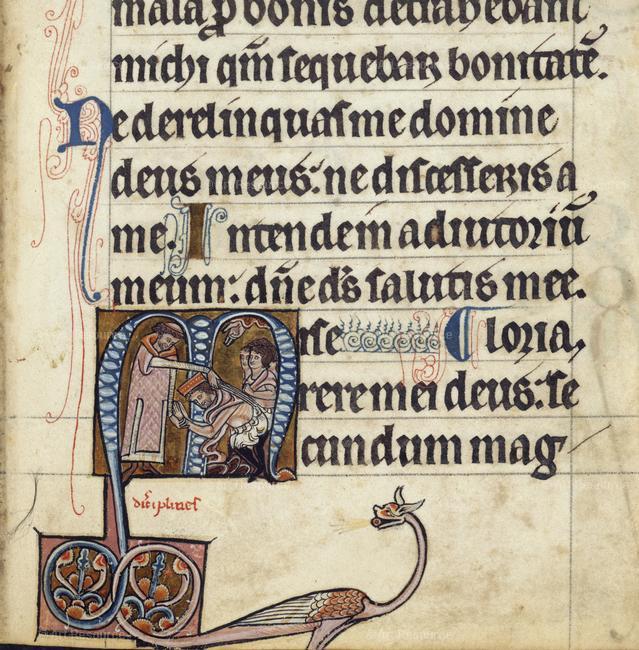 mala p̱ bonis detrahebant
michi qm̄ sequebar bonitatē.
Ne derelinquas me domine
deus meus: ne discesseris a
me. Intende in adiutoriū
meum: dn̄e ds̄ salutis mee.
M pse Gloria.
iserere mei deus: se
cundum mag